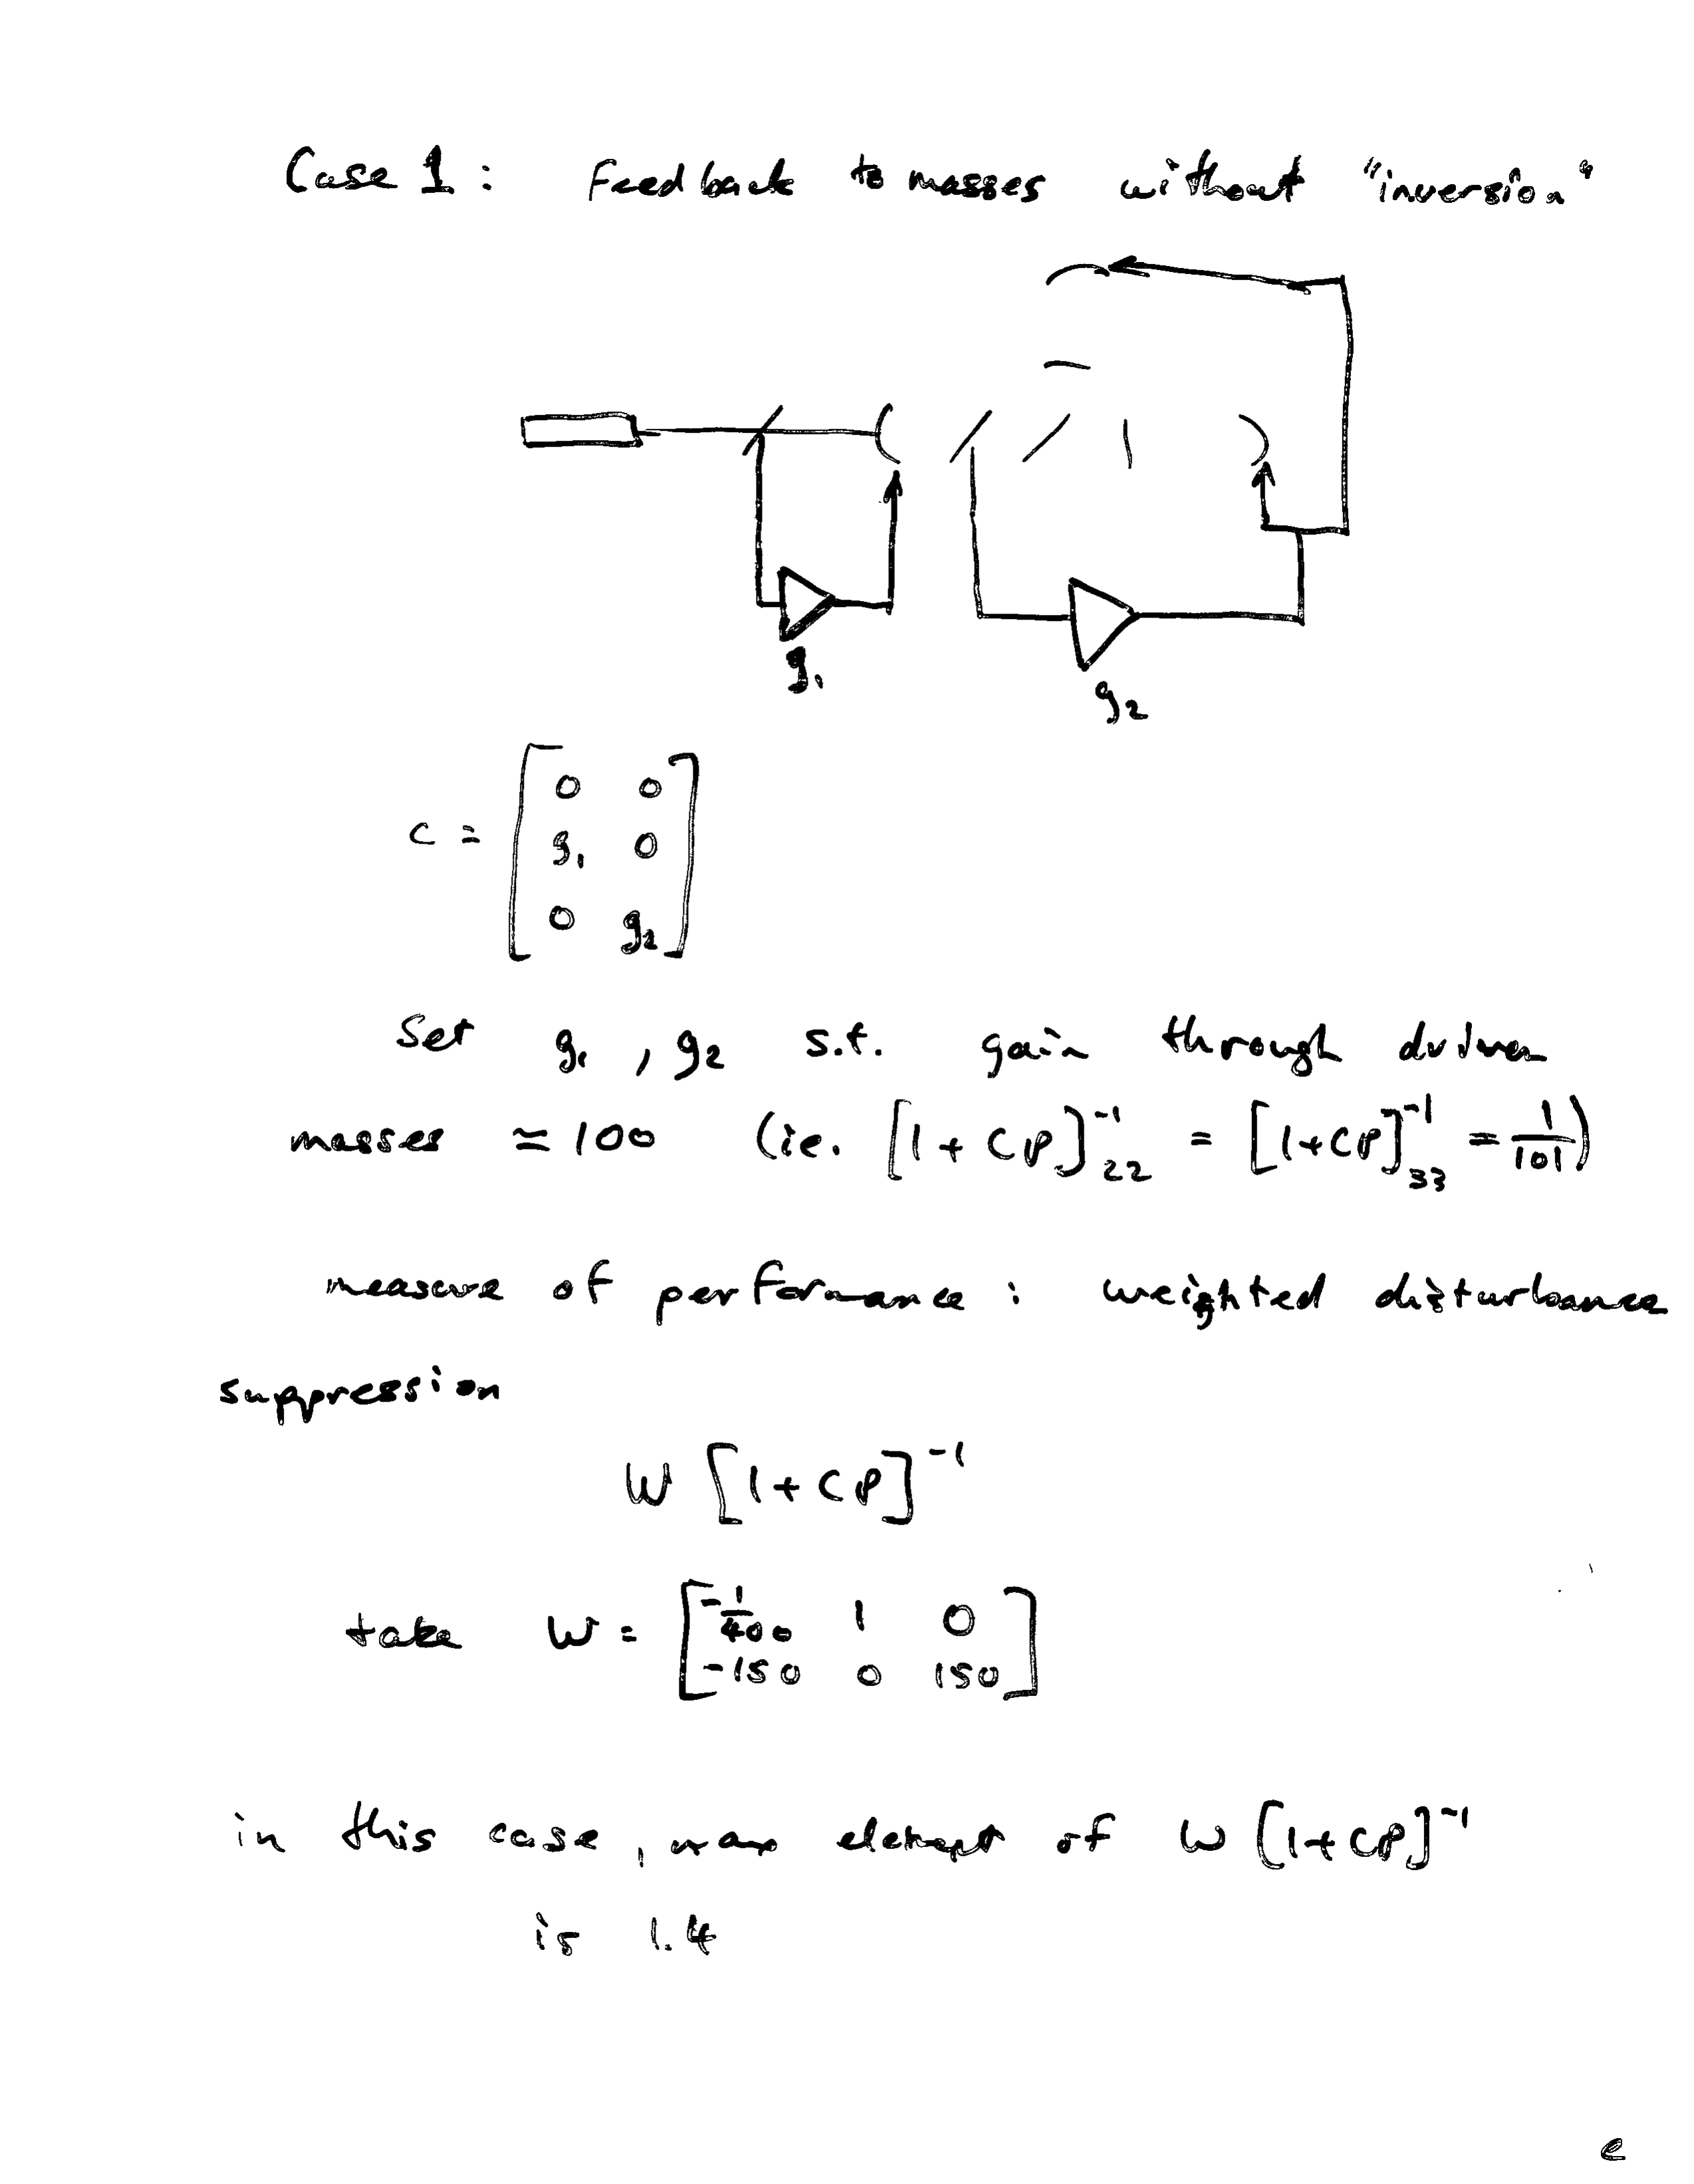 Case 1: Feedback to masses without "inversion"
g₁
g₂
C = [ 0 0
g₁ 0
0 g₂ ]
Set g₁, g₂ s.t. gain through driven
masses ≃ 100 (ie. [1 + CP]⁻¹₂₂ = [1+CP]⁻¹₃₃ = 1/101)
measure of performance: weighted disturbance
suppression
W [1 + CP]⁻¹
take W = [ -1/400 1 0
-150 0 150 ]
in this case, max element of W [1+CP]⁻¹
is 1.4